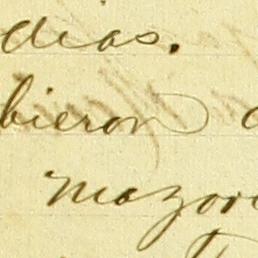 dias.
bieron
mazor